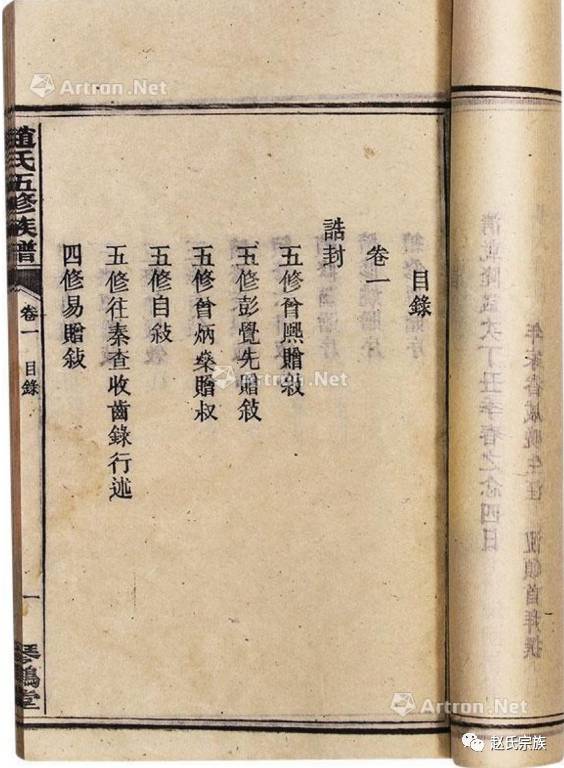 目錄
卷一
誥封
五修曾熈贈敘
五修彭覺先贈敘
五修曾炳燊贈叔
五修自敍
五修往秦查收齒錄行述
四修易贈敍
趙氏五修族譜
卷一
目錄
一
琴鶴堂
Artron.Net
Artron.Net
Artron.Net
赵氏宗族